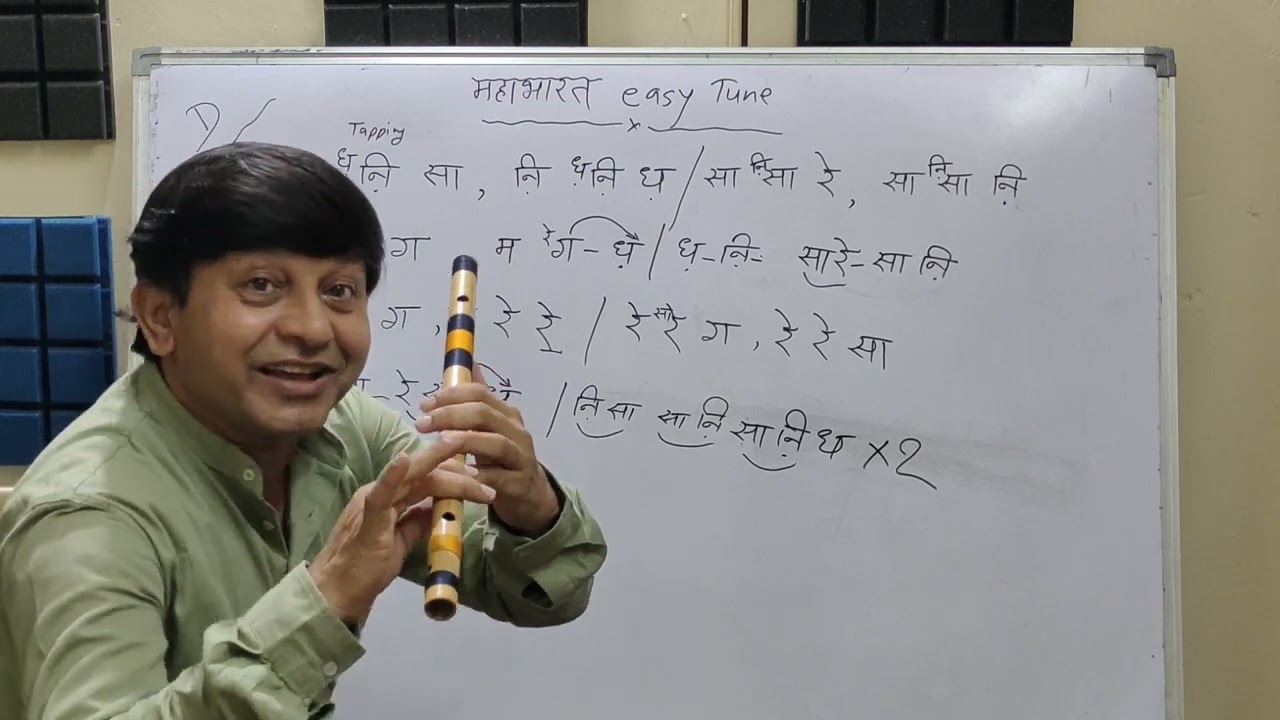 महाभारत easy Tune
Tapping
ध़नि़ सा , नि़ ध़नि़ ध़ / सा नि़सा रे , सा नि़सा नि़
ग म रेग - ध़ / ध़ - नि़ - सारे - सा नि़
ग , रे रे / रे सारे ग , रे रे सा
- रे / नि़सा सा नि़ सा नि़ ध़ x 2